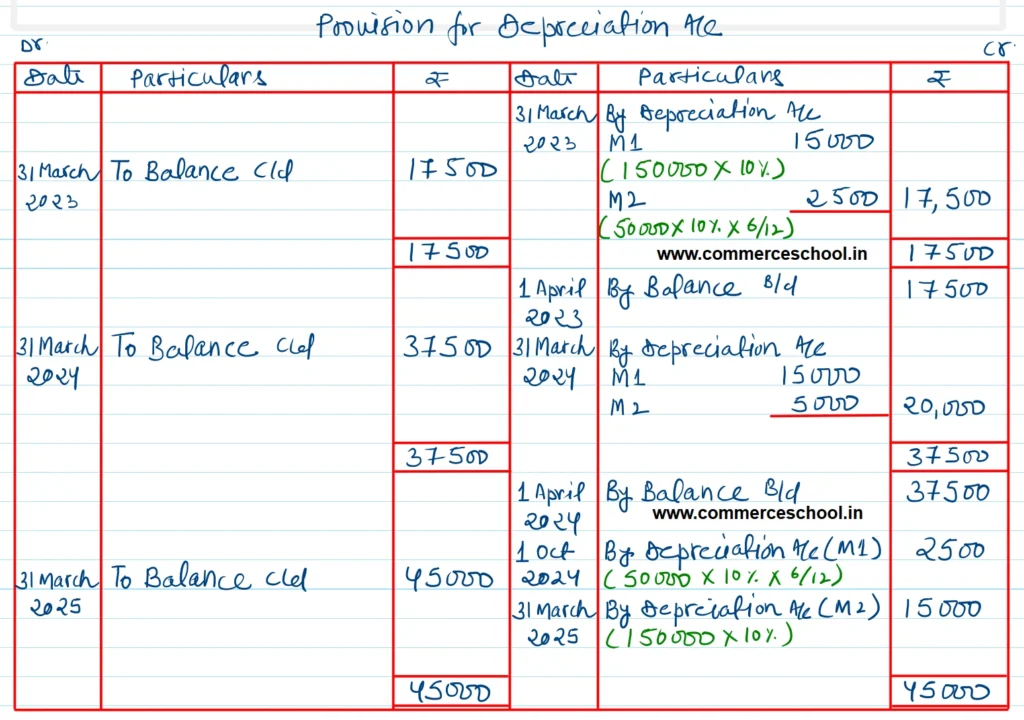 Provision for Depreciation A/c
Dr. Cr.
Date Particulars ₹ Date Particulars ₹
31 March By Depreciation A/c
2023 M1 15000
31 March To Balance C/d 17500 (150000 X 10%)
2023 M2 2500 17,500
(50000 X 10% X 6/12)
17500 www.commerceschool.in 17500
1 April By Balance B/d 17500
2023
31 March To Balance C/d 37500 31 March By Depreciation A/c
2024 2024 M1 15000
M2 5000 20,000
37500 37500
1 April By Balance B/d 37500
2024 www.commerceschool.in
1 Oct By Depreciation A/c (M1) 2500
31 March To Balance C/d 45000 2024 (50000 X 10% X 6/12)
2025 31 March By Depreciation A/c (M2) 15000
2025 (150000 X 10%)
45000 45000